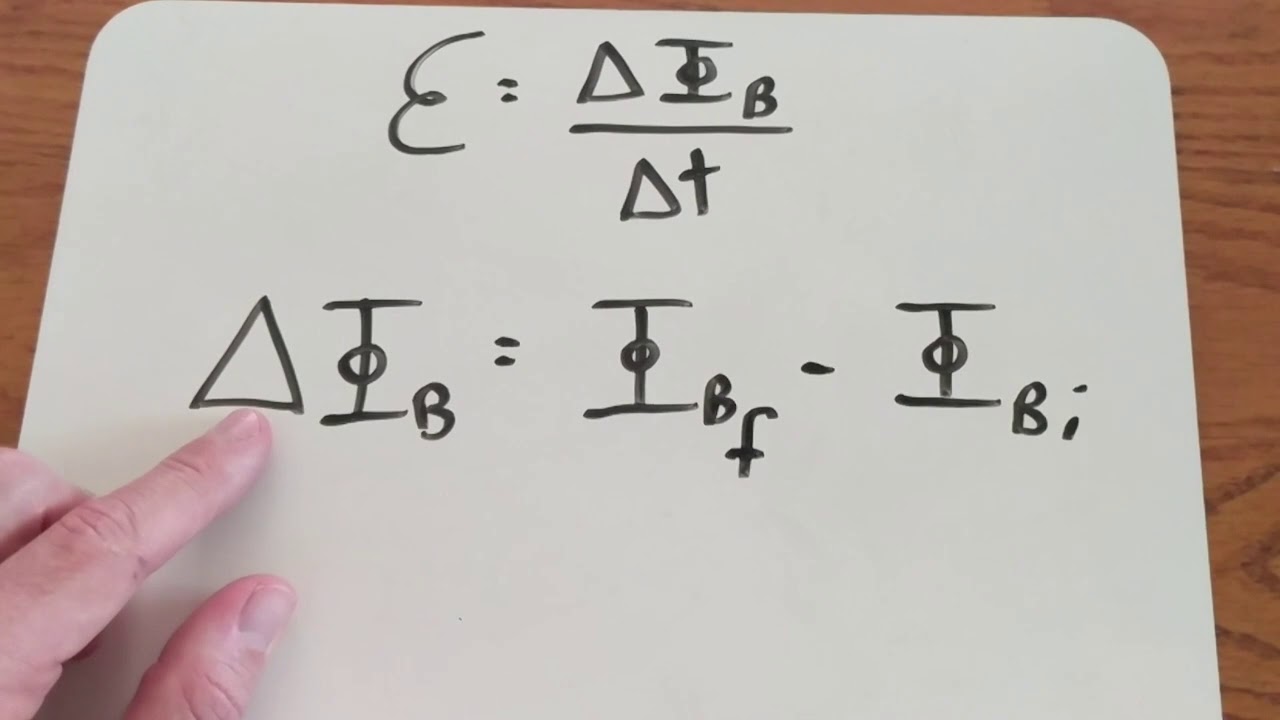 ℰ = ΔΦ_B / Δt
ΔΦ_B = Φ_B_f - Φ_B_i